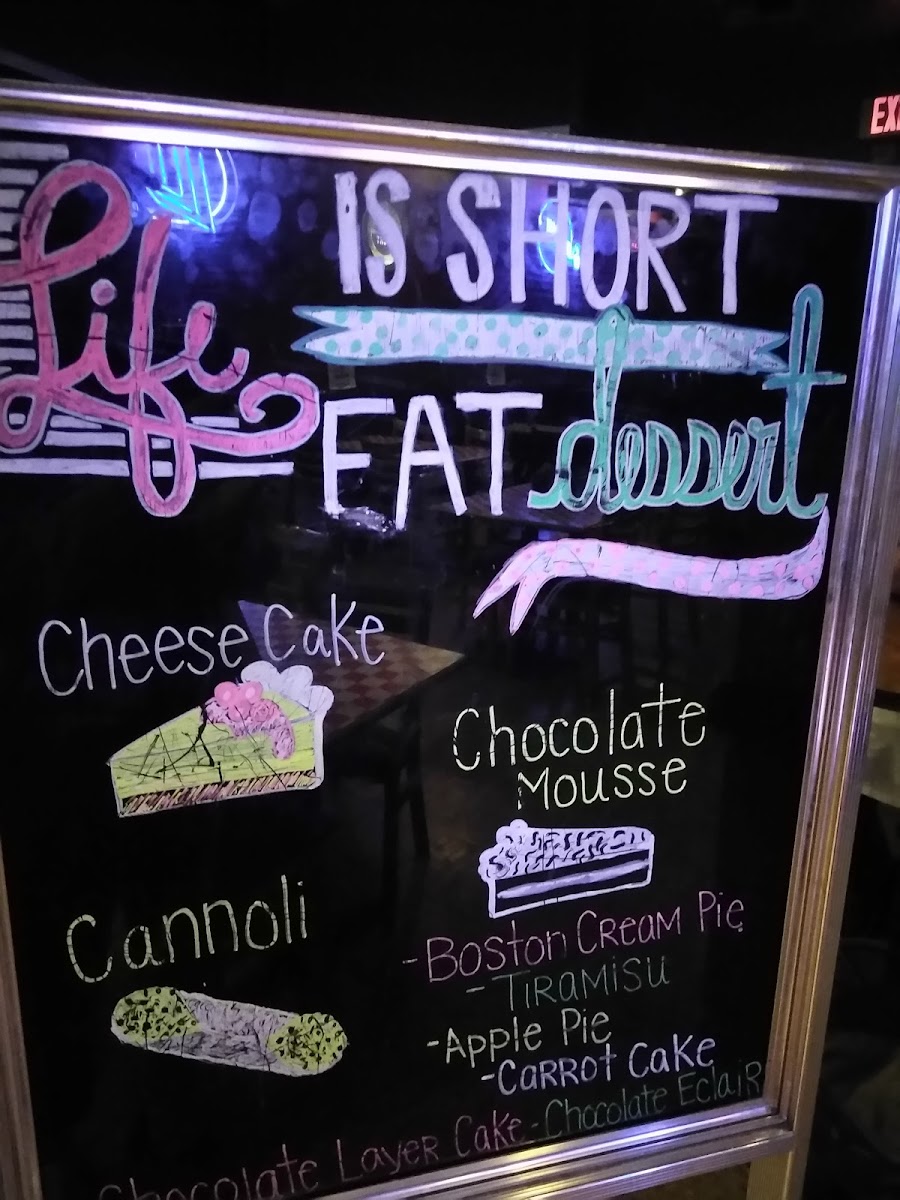 Life IS SHORT
EAT dessert
Cheese Cake
Chocolate
Mousse
Cannoli
-Boston Cream Pie
-Tiramisu
-Apple Pie
-Carrot Cake
Chocolate Layer Cake -Chocolate Eclair